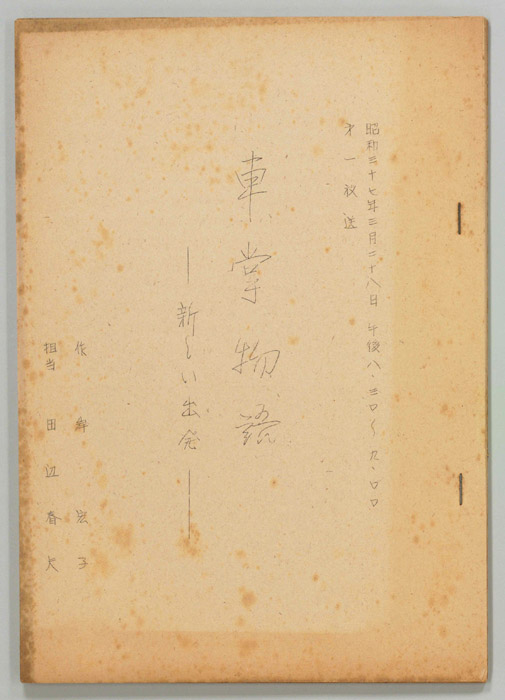 昭和三十七年三月二十八日 午後八・三〇〜九・〇〇
才一放送
車掌物語
——新しい出発——
作 岸 宏子
担当 田辺春